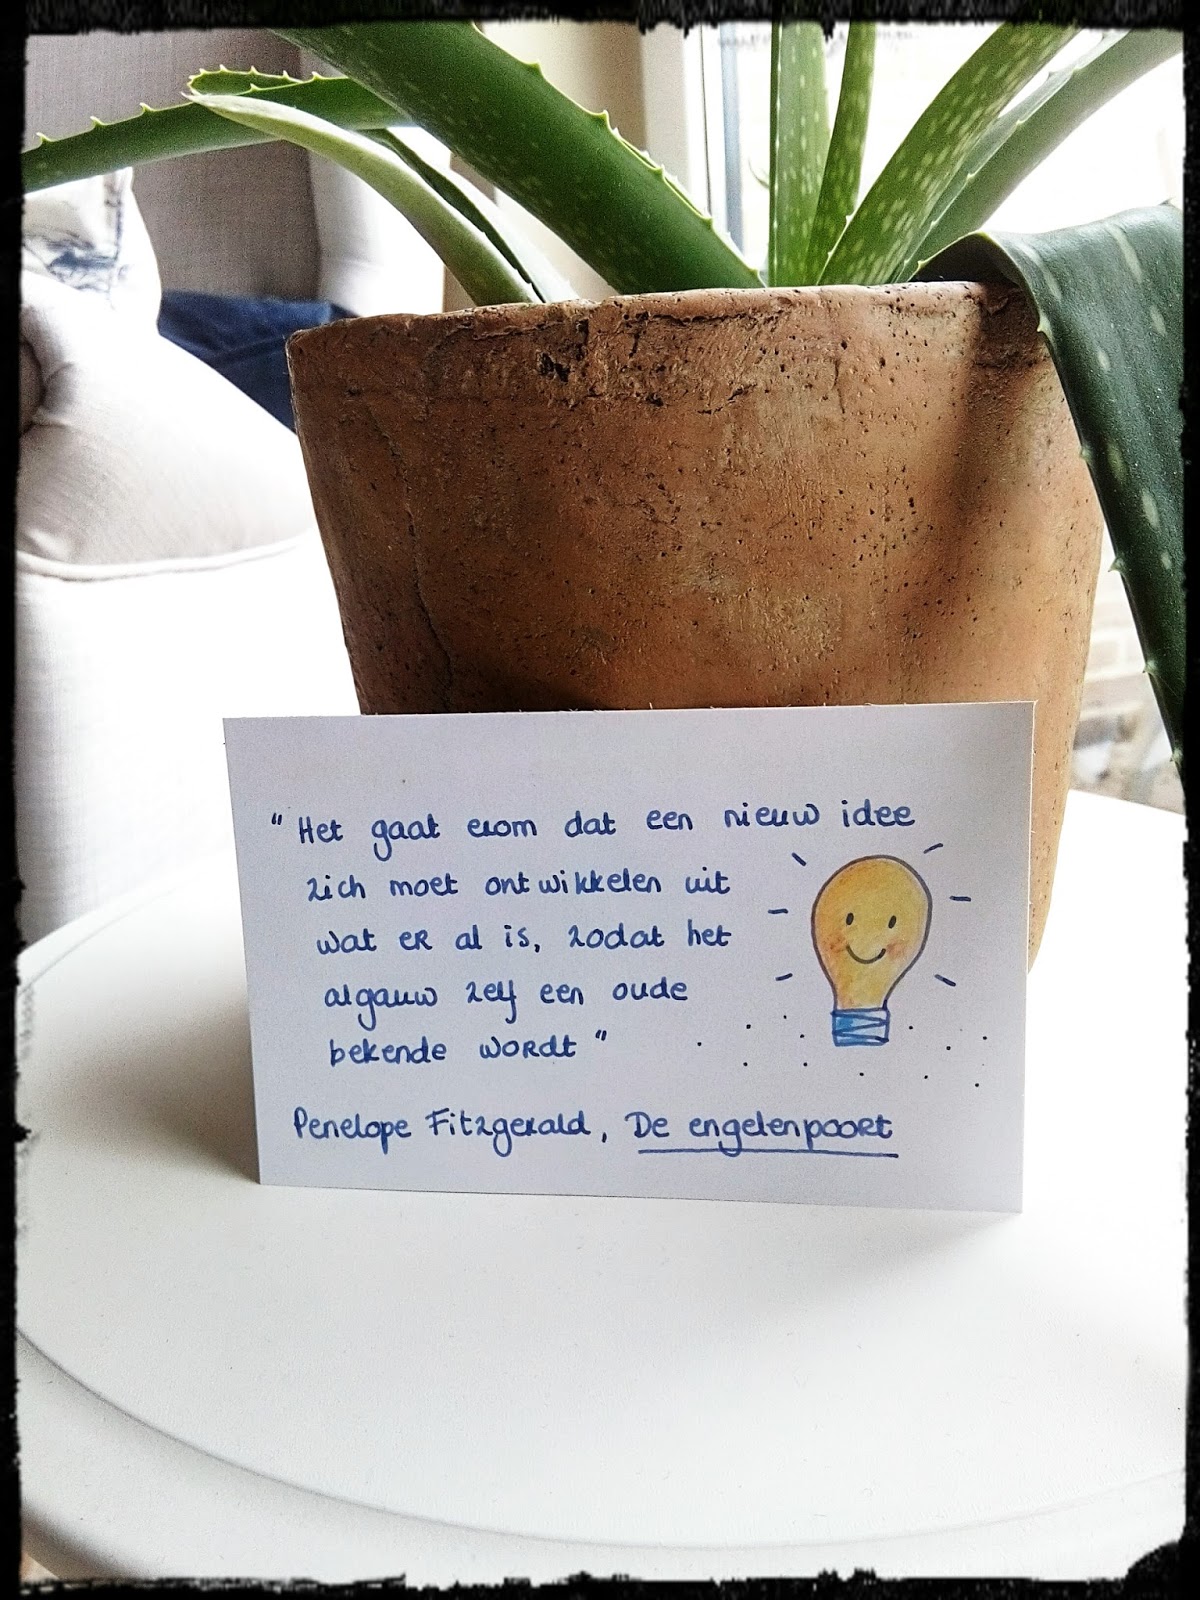 "Het gaat erom dat een nieuw idee
zich moet ontwikkelen uit
wat er al is, zodat het
algauw zelf een oude
bekende wordt"
Penelope Fitzgerald, De engelenpoort